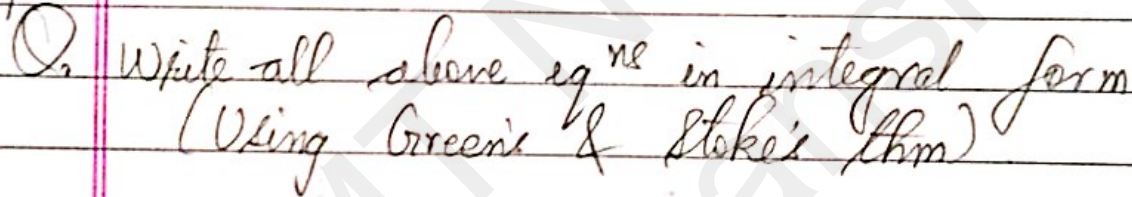 Q. Write all above eqns in integral form
(Using Green's & Stoke's thm)